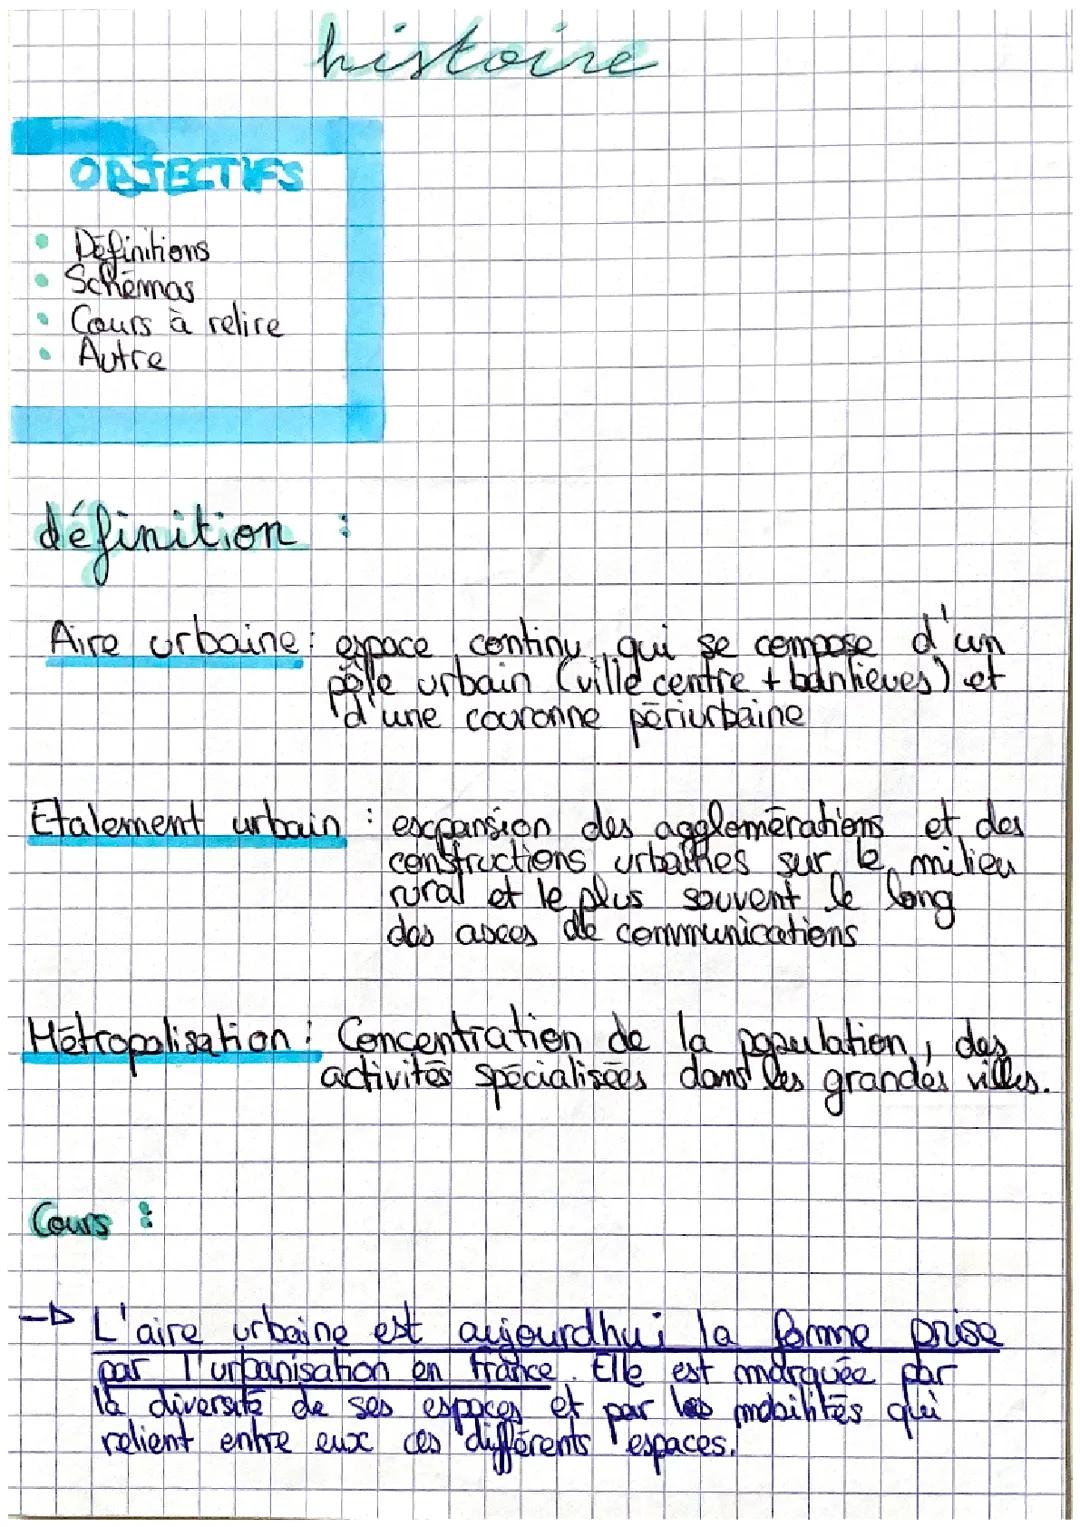 histoire
OBJECTIFS
• Définitions
• Schémas
• Cours à relire
• Autre
définition :
Aire urbaine : espace continu, qui se compose d'un
pôle urbain (ville centre + banlieues) et
d'une couronne périurbaine
Etalement urbain : expansion des agglomérations et des
constructions urbaines sur le milieu
rural et le plus souvent le long
des axces de communications
Métropolisation : Concentration de la population, des
activités spécialisées dans les grandes villes.
Cours :
→ L'aire urbaine est aujourdhui la forme prise
par l'urbanisation en france. Elle est marquée par
la diversité de ses espaces et par les mobilités qui
relient entre eux ces différents espaces.